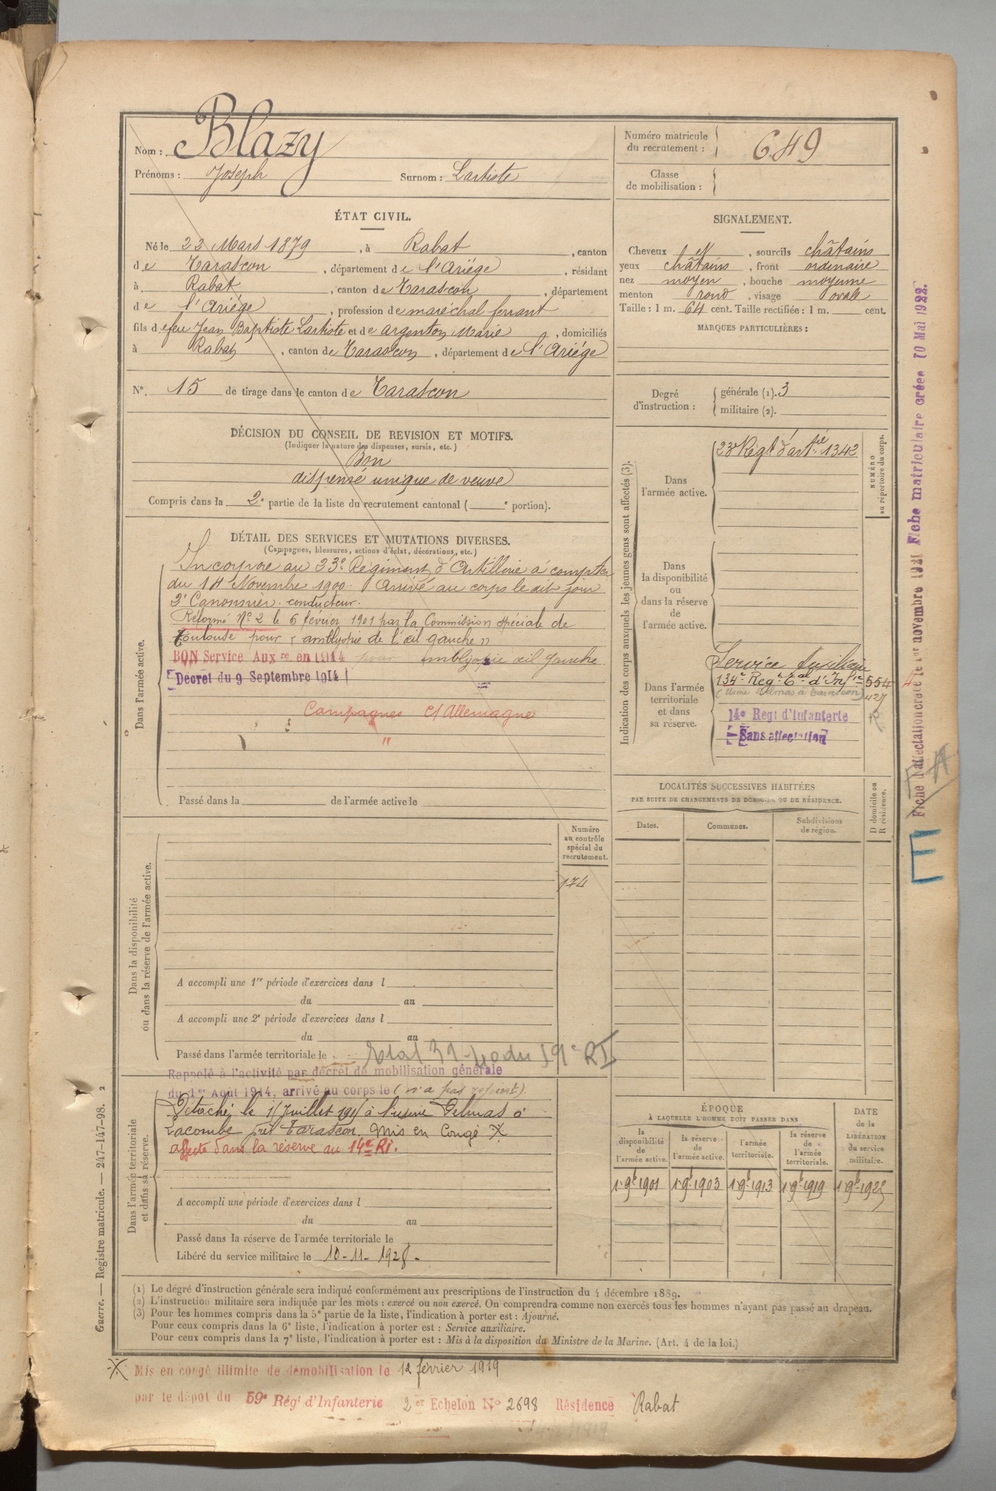 Nom : Blazy
Prénoms : Joseph Surnom : Lartiste
Numéro matricule du recrutement : 649
Classe de mobilisation :
ÉTAT CIVIL.
Né le 23 Mars 1879, à Rabat, canton
de Tarascon, département de l'Ariége, résidant
à Rabat, canton de Tarascon, département
de l'Ariége, profession de maréchal ferrant
fils de feu Jean Baptiste Lartiste et de argenton Marie, domiciliés
à Rabat, canton de Tarascon, département de l'Ariége
N° 15 de tirage dans le canton de Tarascon
SIGNALEMENT.
Cheveux et, sourcils châtains
yeux châtains, front ordinaire
nez moyen, bouche moyenne
menton rond, visage ovale
Taille : 1 m. 64 cent. Taille rectifiée : 1 m. cent.
MARQUES PARTICULIÈRES :
Degré d'instruction : générale (1). 3
militaire (2).
DÉCISION DU CONSEIL DE REVISION ET MOTIFS.
(Indiquer la nature des dispenses, sursis, etc.)
Bon
dispensé unique de veuve
Compris dans la 2e partie de la liste du recrutement cantonal ( e portion).
DÉTAIL DES SERVICES ET MUTATIONS DIVERSES.
(Campagnes, blessures, actions d'éclat, décorations, etc.)
Dans l'armée active.
Incorporé au 23e Régiment d'Artillerie à compter
du 14 Novembre 1900. Arrivé au corps le dit jour
2e Canonnier conducteur.
Réformé N° 2 le 6 février 1901 par la Commission spéciale de
Toulouse pour « amblyopie de l'œil gauche »
BON Service Auxre en 1914 pour Amblyopie œil gauche
Décret du 9 Septembre 1914
Campagnes c/ Allemagne
Passé dans la de l'armée active le
Indication des corps auxquels les jeunes gens sont affectés (3).
NUMÉRO au répertoire du corps.
Dans l'armée active.
23e Régt d'artie 1342
Dans la disponibilité ou dans la réserve de l'armée active.
Dans l'armée territoriale et dans sa réserve.
Service Auxiliaire
134e Regt Tal d'Infie 554
14e Regt d'Infanterie
Sans affectation
LOCALITÉS SUCCESSIVES HABITÉES
PAR SUITE DE CHANGEMENTS DE DOMICILE OU DE RÉSIDENCE.
Dates. Communes. Subdivisions de région. D domicile ou R résidence.
Numéro au contrôle spécial du recrutement.
174
Dans la disponibilité ou dans la réserve de l'armée active.
A accompli une 1re période d'exercices dans l
du au
A accompli une 2e période d'exercices dans l
du au
Passé dans l'armée territoriale le
Etat 31-40 du 59e RI
Rappelé à l'activité par décret de mobilisation générale
du 1er Août 1914, arrivé au corps le (n'a pas rejoint).
Dans l'armée territoriale et dans sa réserve.
Détaché le 1 Juillet 191 à l'usine Delmas à
Lacombe près Tarascon. Mis en Congé X
affecté dans la réserve au 14e RI.
A accompli une période d'exercices dans l
du au
Passé dans la réserve de l'armée territoriale le
Libéré du service militaire le 10-11-1928.
ÉPOQUE
À LAQUELLE L'HOMME DOIT PASSER DANS
la disponibilité de l'armée active. la réserve de l'armée active. l'armée territoriale. la réserve de l'armée territoriale.
DATE de la LIBÉRATION du service militaire.
1 9bre 1901 1 9bre 1903 1 9bre 1913 1 9bre 1919 1 9bre 1925
(1) Le degré d'instruction générale sera indiqué conformément aux prescriptions de l'instruction du 4 décembre 1889.
(2) L'instruction militaire sera indiquée par les mots : exercé ou non exercé. On comprendra comme non exercés tous les hommes n'ayant pas passé au drapeau.
(3) Pour les hommes compris dans la 5e partie de la liste, l'indication à porter est : Ajourné.
Pour ceux compris dans la 6e liste, l'indication à porter est : Service auxiliaire.
Pour ceux compris dans la 7e liste, l'indication à porter est : Mis à la disposition du Ministre de la Marine. (Art. 4 de la loi.)
X Mis en congé illimité de démobilisation le 12 février 1919
par le dépôt du 59e Rég' d'Infanterie 2er Echelon N° 2698 Résidence Rabat
Guerre. — Registre matricule. — 247-147-98. 2
Fiche d'affectation créée le 1er novembre 1921 Fiche matriculaire créée 10 Mai 1922.
E